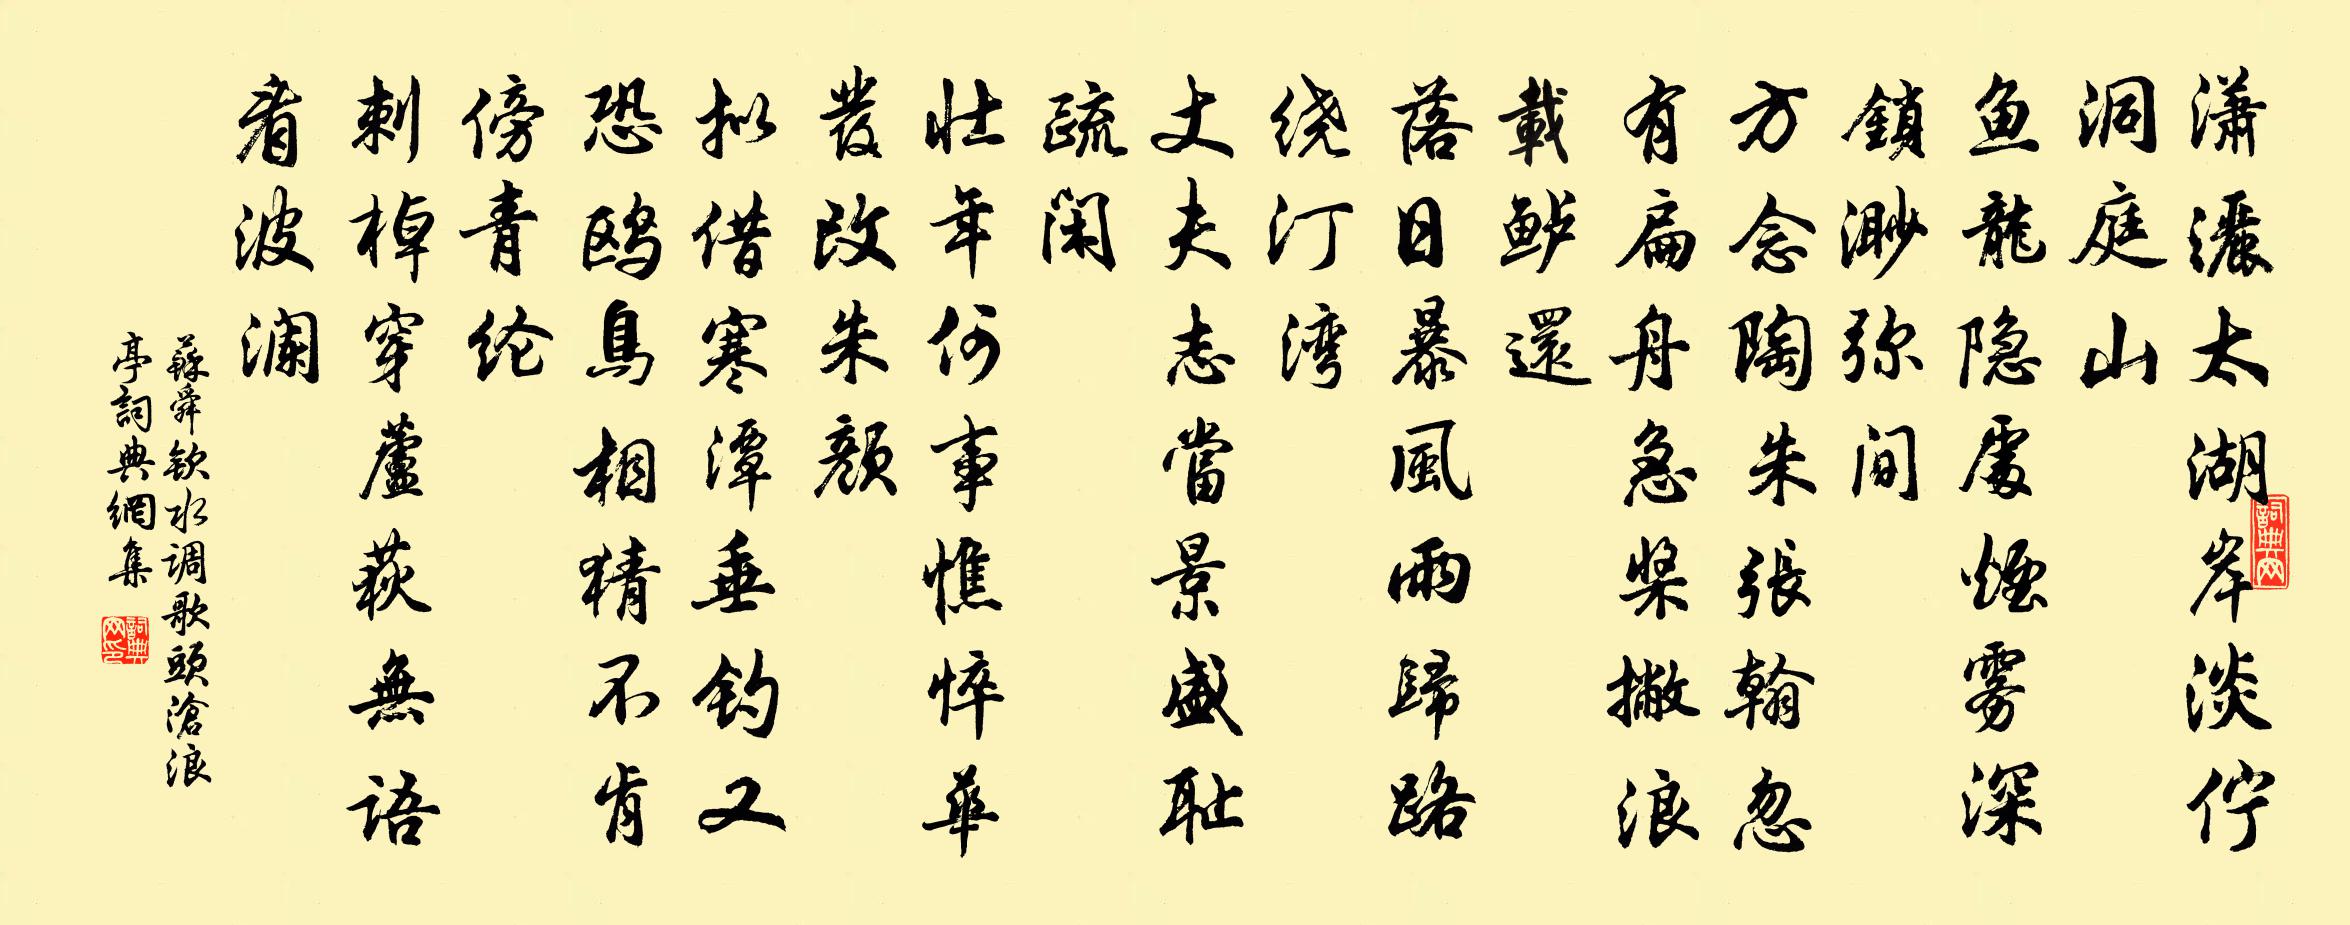 潇灑太湖岸淡佇
洞庭山
鱼龍隐處煙雾深
鎖渺弥间
方念陶朱張翰忽
有扁舟急桨撇浪
載鲈還
落日暴風雨歸路
绕汀湾
丈夫志當景盛耻
疏闲
壮年何事憔悴華
發改朱颜
拟借寒潭垂钓又
恐鸥鳥相猜不肯
傍青纶
刺棹穿蘆荻無語
看波澜
蘇舜钦水调歌頭滄浪
亭詞典網集
詞典网
詞典网印